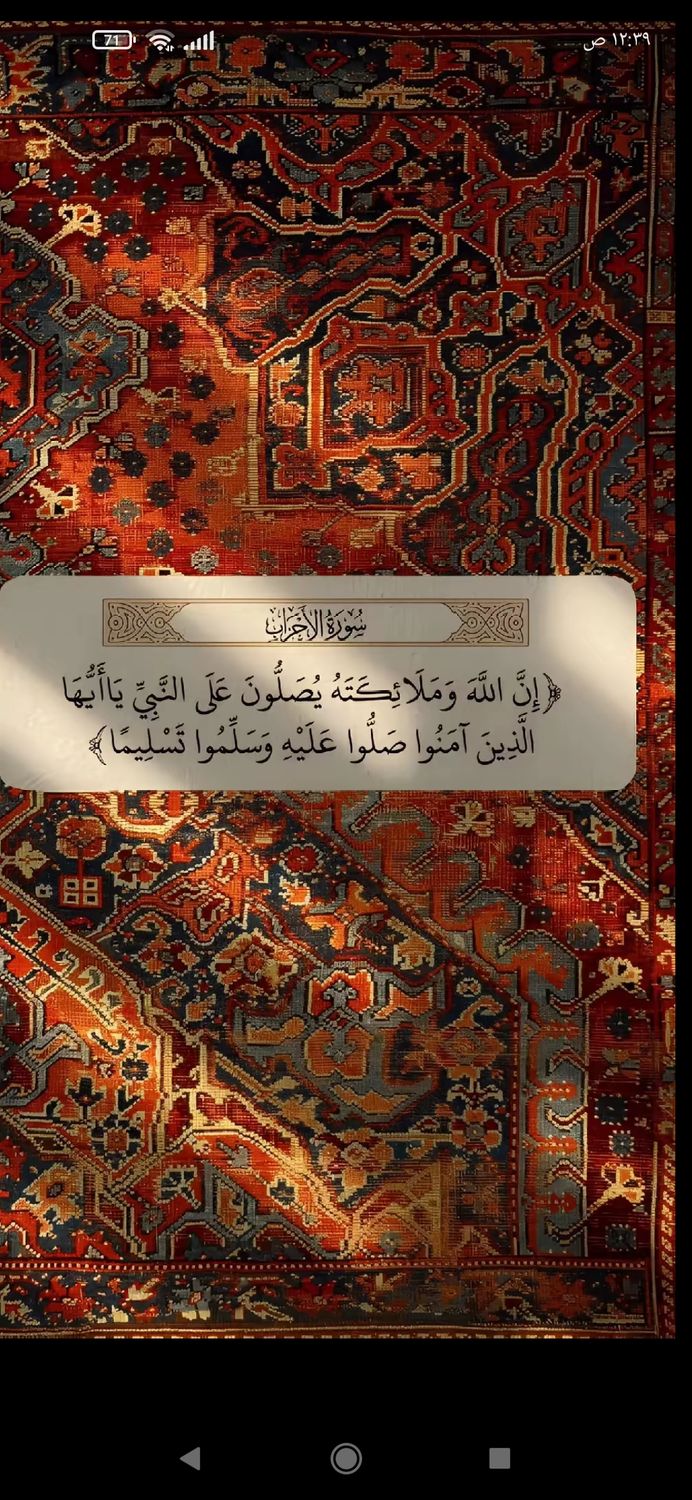 ١٢:٣٩ ص
71
سُورَةُ الأَحْزَابِ
﴿إِنَّ اللَّهَ وَمَلَائِكَتَهُ يُصَلُّونَ عَلَى النَّبِيِّ يَاأَيُّهَا
الَّذِينَ آمَنُوا صَلُّوا عَلَيْهِ وَسَلِّمُوا تَسْلِيمًا﴾